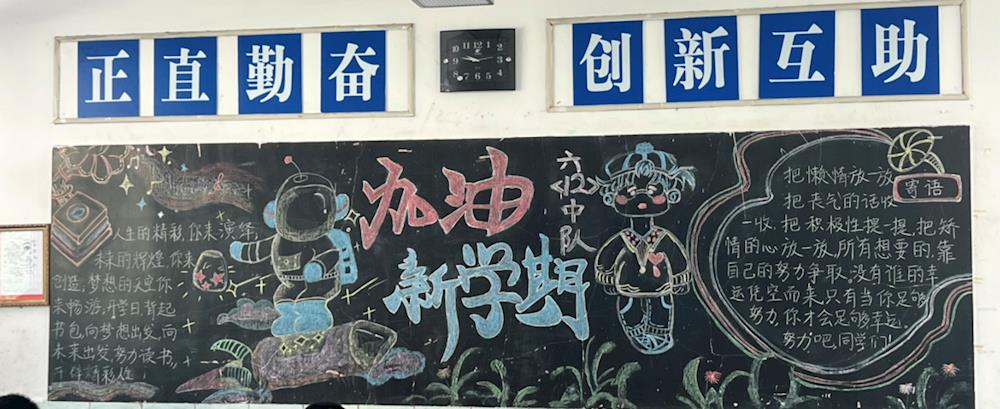 正直勤奋
10 11 12 1 2
9 3
8 7 6 5 4
创新互助
加油
新学期
六
<12>
中
队
人生的精彩，你来演绎，
未来的辉煌，你来
创造，梦想的天空你
来畅游，开学日，背起
书包，向梦想出发，向
未来出发，努力读书，
寄语
把懒惰放一放
把丧气的话收
一收，把积极性提一提，把矫
情的心放一放，所有想要的，靠
自己的努力争取。没有谁的幸
运凭空而来，只有当你足够
努力，你才会足够幸运。
努力吧，同学们！